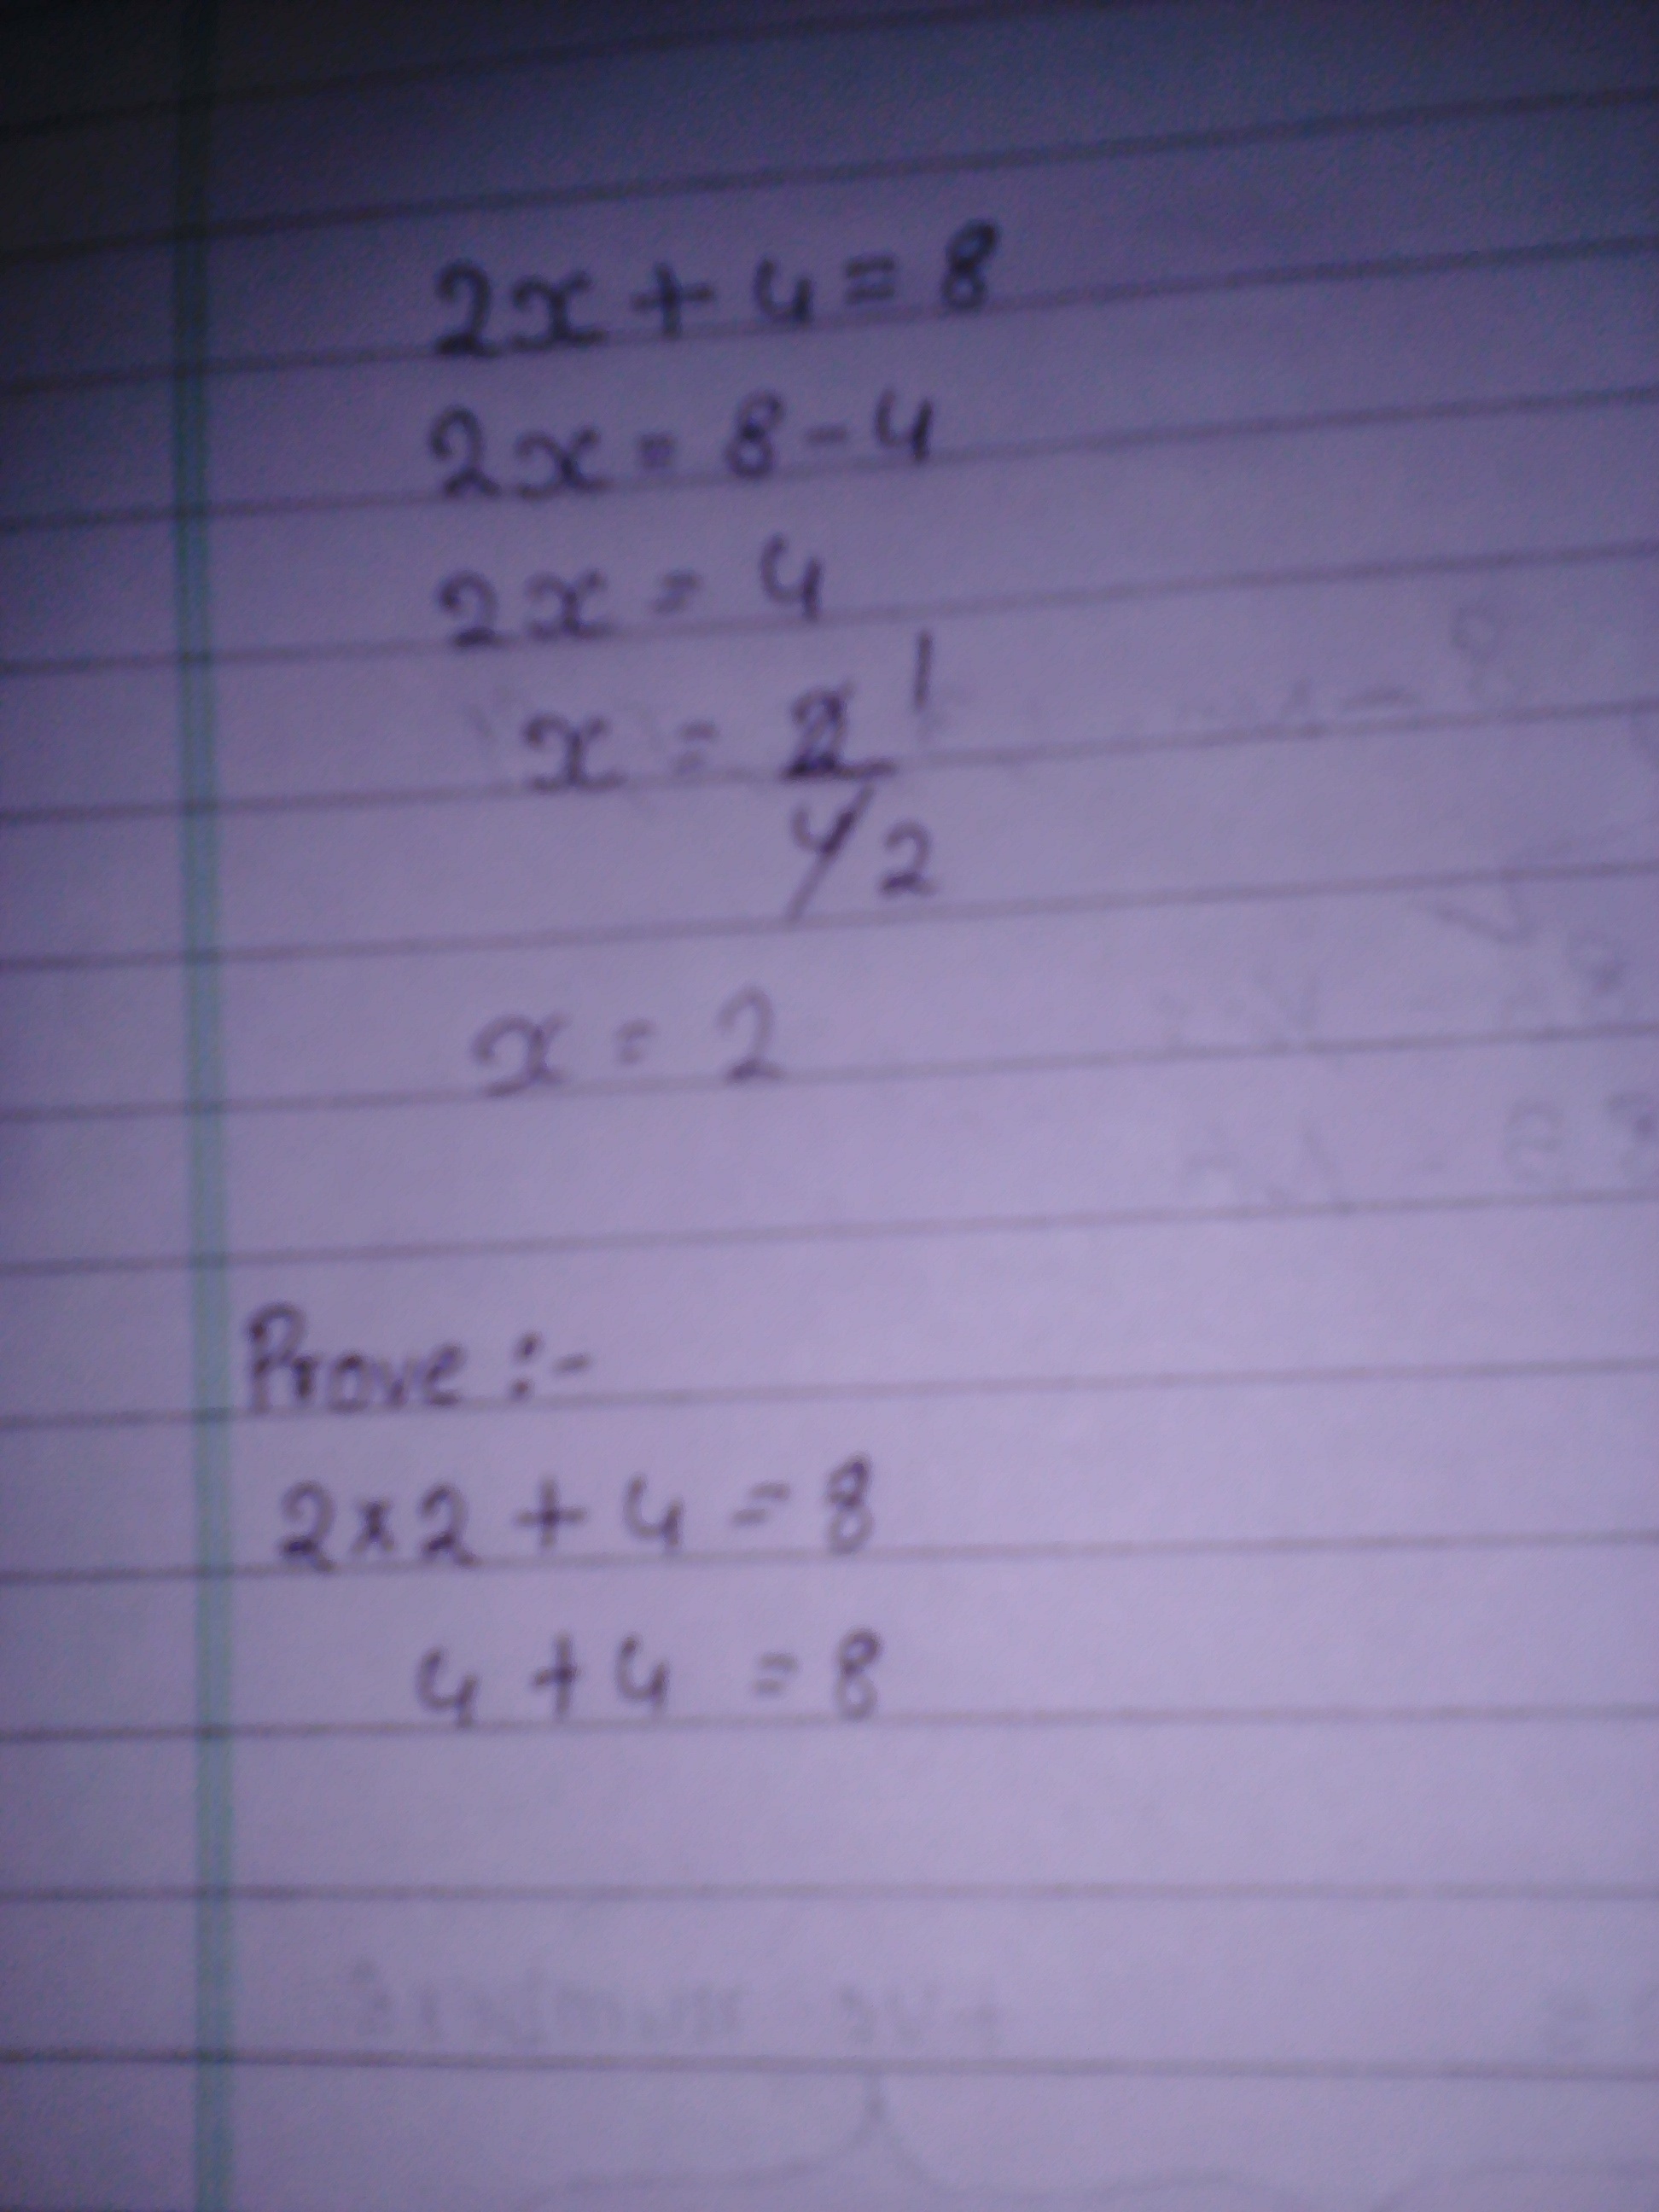 2x + 4 = 8
2x = 8 - 4
2x = 4
x = 2/4 1/2
x = 2
Prove :-
2×2 + 4 = 8
4 + 4 = 8